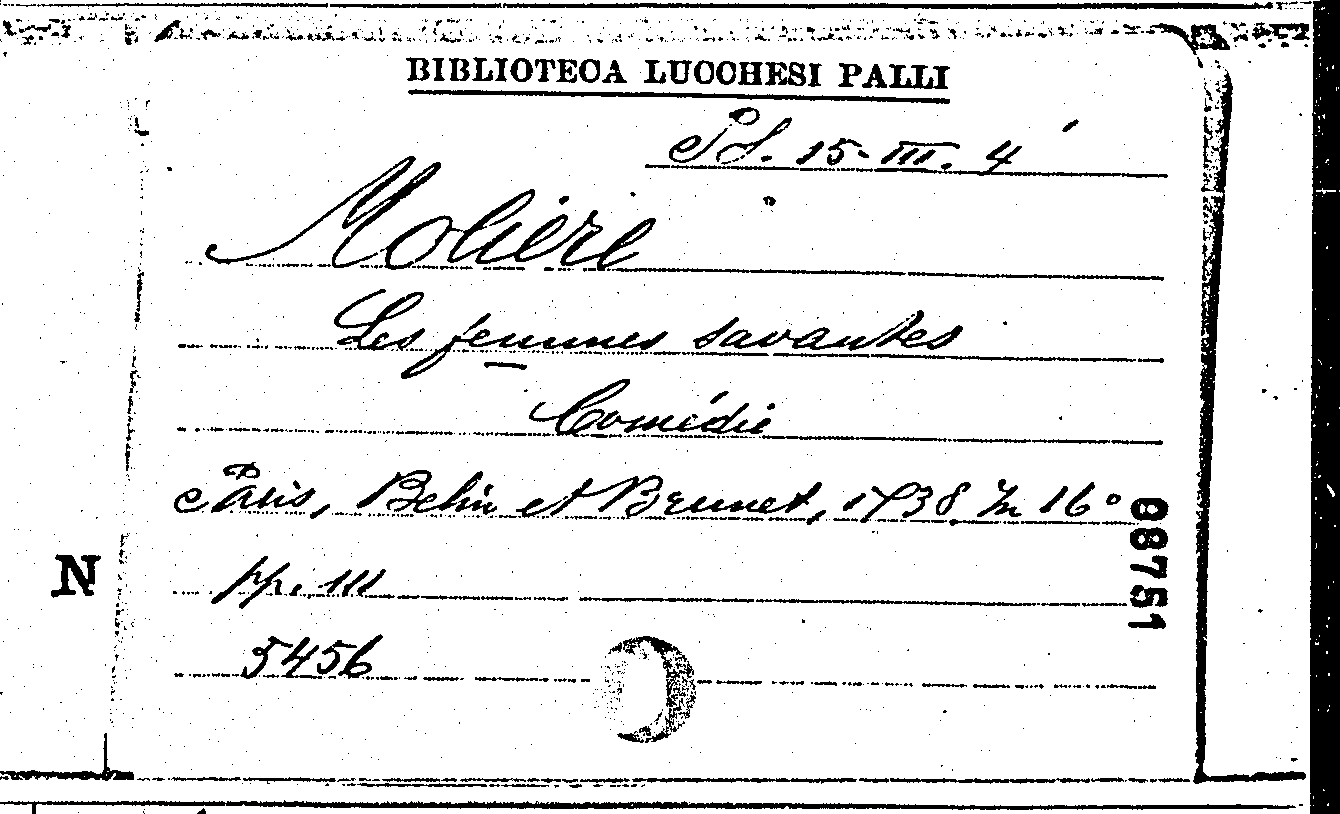 BIBLIOTECA LUCCHESI PALLI
Pd. 15-III. 4
Molière
Les femmes savantes
Comédie
Paris, Belin et Brunet, 1738 In 16°
pp. 111
5456
N
08751